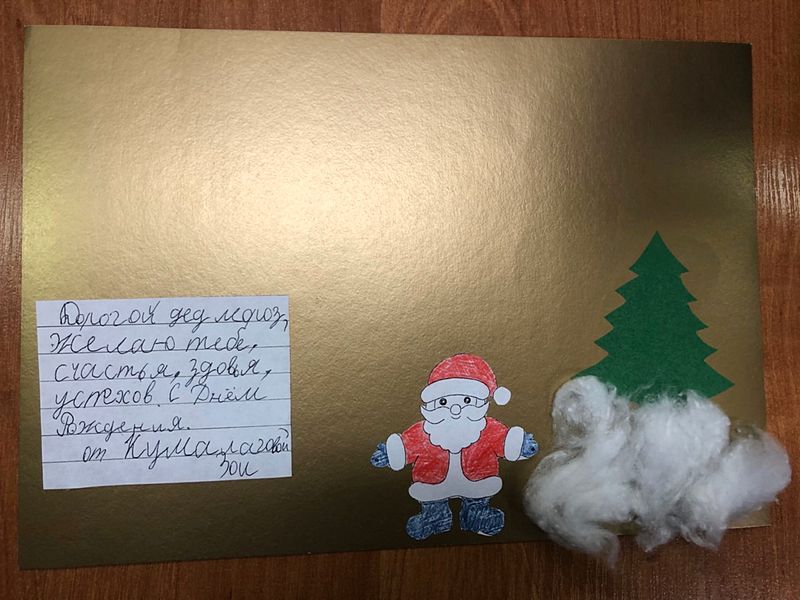 Дорогой дед мороз,
Желаю тебе,
счастья, здовья,
успехов. С Днём
Рждения.
от Кумалаговой
Зои